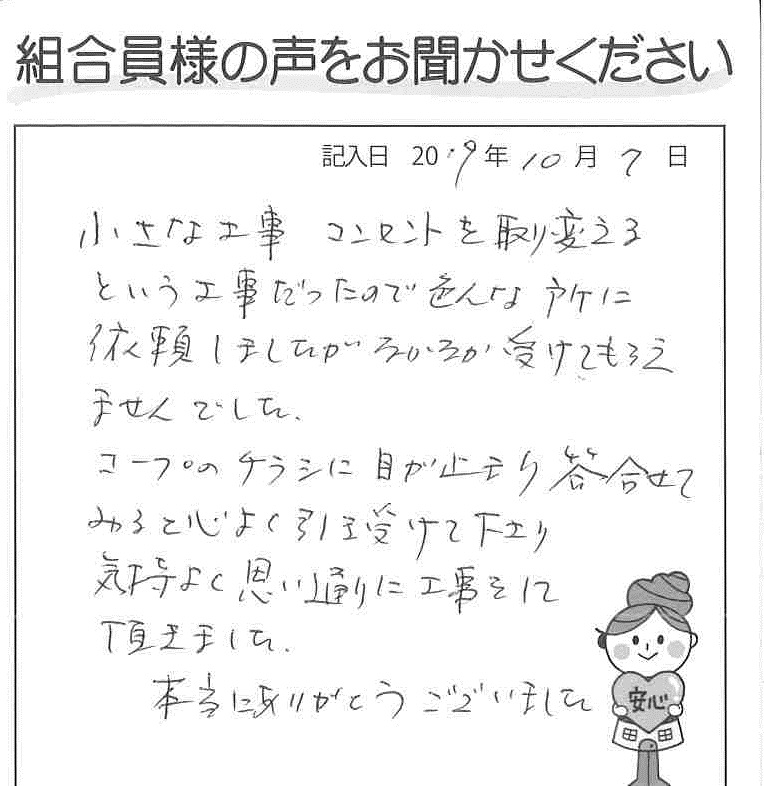 組合員様の声をお聞かせください
記入日 2019年10月7日
小さな工事 コンセントを取り変える
という工事だったので色んな所に
依頼しましたがなかなか受けてもらえ
ませんでした。
コープのチラシに目が止まり答合せて
みると心よく引き受けて下さり
気持よく思い通りに工事をして
頂きました。
本当にありがとうございました
安心